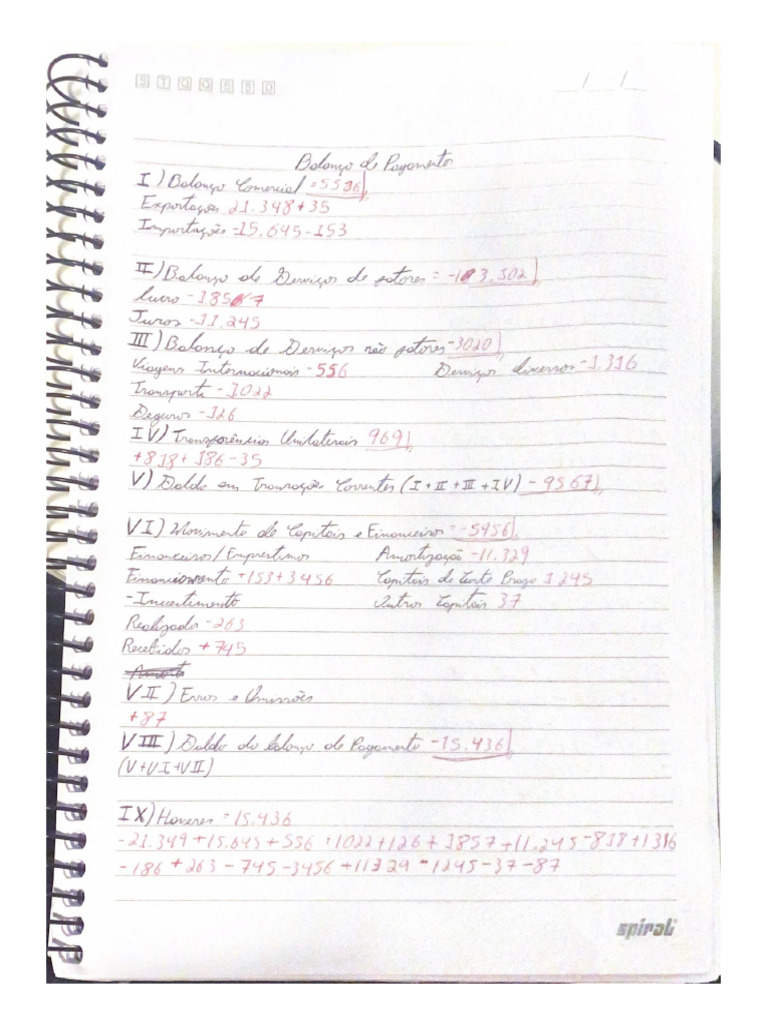 S T Q Q S S D
/ /
Balanço de Pagamentos
I) Balança Comercial = 5536
Exportações 21.348 + 35
Importações -15.645 - 153
II) Balança de Serviços de fatores = -13.102
Lucro - 1857
Juros - 11.245
III) Balança de Serviços não fatores -3020
Viagens Internacionais - 556 Serviços diversos - 1.316
Transporte - 1022
Seguros - 126
IV) Transferências Unilaterais 969
+ 818 + 186 - 35
V) Saldo em Transações Correntes (I + II + III + IV) - 9567
VI) Movimento de Capitais e Financeiros = -5956
Financeiros/Emprestimos Amortização - 11.329
Financiamento + 153 + 3456 Capitais de Curto Prazo 1245
- Investimento Outros Capitais 37
Realizados - 263
Recebidos + 745
VII) Erros e Omissões
+ 87
VIII) Saldo do balanço de Pagamento - 15.436
(V + VI + VII)
IX) Haveres = 15.436
- 21.349 + 15.645 + 556 + 1022 + 126 + 1857 + 11.245 - 818 + 1316
- 186 + 263 - 745 - 3456 + 11329 - 1245 - 37 - 87
spiral